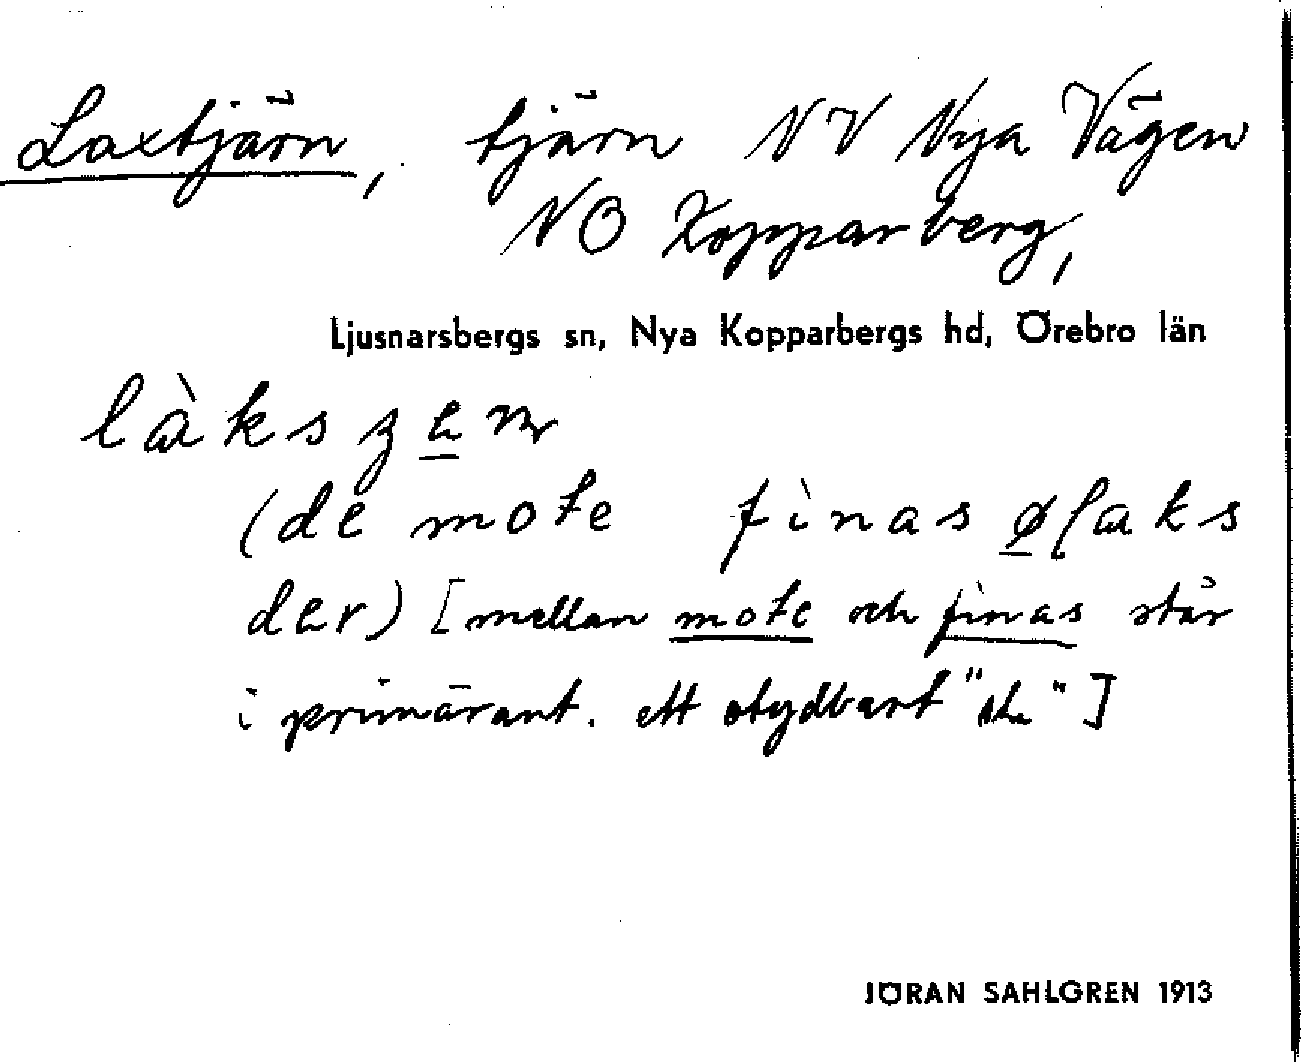 Laxtjärn, tjärn NV Nya Vägen
NO Kopparberg,
Ljusnarsbergs sn, Nya Kopparbergs hd, Örebro län
(de mote finas
der) [mellan mote och finas står
i primärant. ett otydbart "sk" ]
JÖRAN SAHLGREN 1913